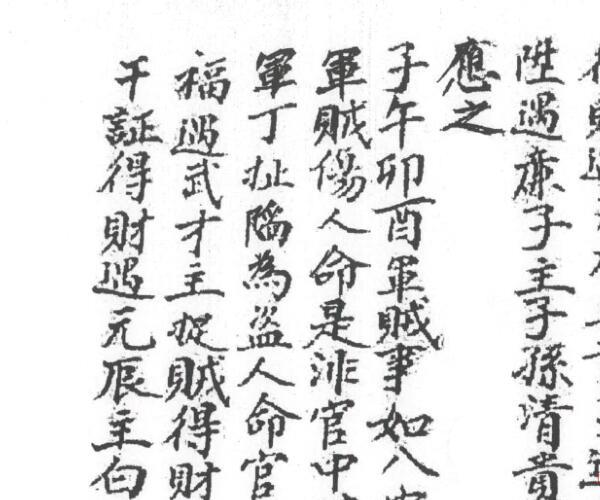 陞遇廉子主子孫清貴
應之
子午卯酉軍賊事如八
軍賊傷人命是非官中
軍丁扯陷為盜人命官
福遇武才主捉賊得財
干証得財遇元辰主白